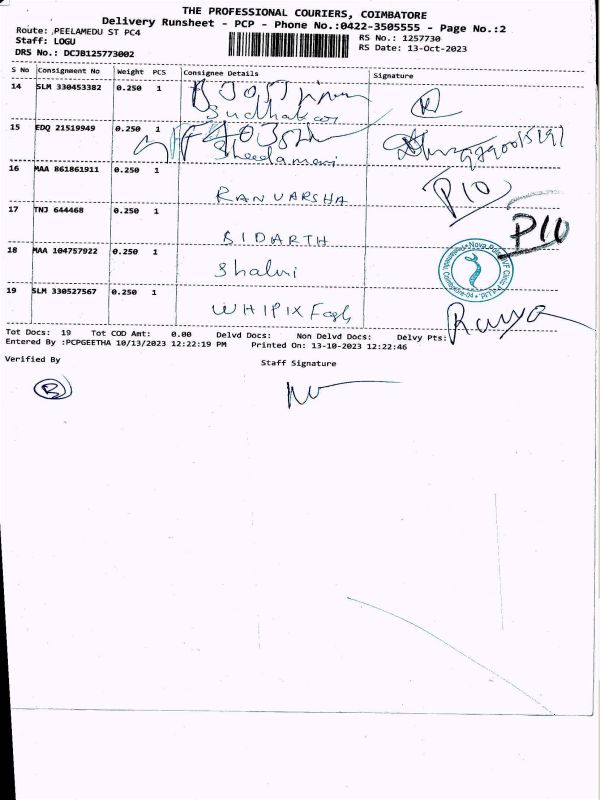 THE PROFESSIONAL COURIERS, COIMBATORE
Delivery Runsheet - PCP - Phone No.:0422-3505555 - Page No.:2
Route: PEELAMEDU ST PC4
Staff: LOGU
DRS No.: DCJB125773002
RS No.: 1257730
RS Date: 13-Oct-2023
S No Consignment No Weight PCS Consignee Details Signature
14 SLM 330453382 0.250 1
Sudhakar
15 EDQ 21519949 0.250 1
16 MAA 861861911 0.250 1 P10
RANVARSHA
17 TNJ 644468 0.250 1 P10
BIDARTH
18 MAA 104757922 0.250 1
Shalini
19 SLM 330527567 0.250 1
WHIPIX Ramya
Tot Docs: 19 Tot COD Amt: 0.00 Delvd Docs: Non Delvd Docs: Delvy Pts:
Entered By :PCPGEETHA 10/13/2023 12:22:19 PM Printed On: 13-10-2023 12:22:46
Verified By
Staff Signature
R